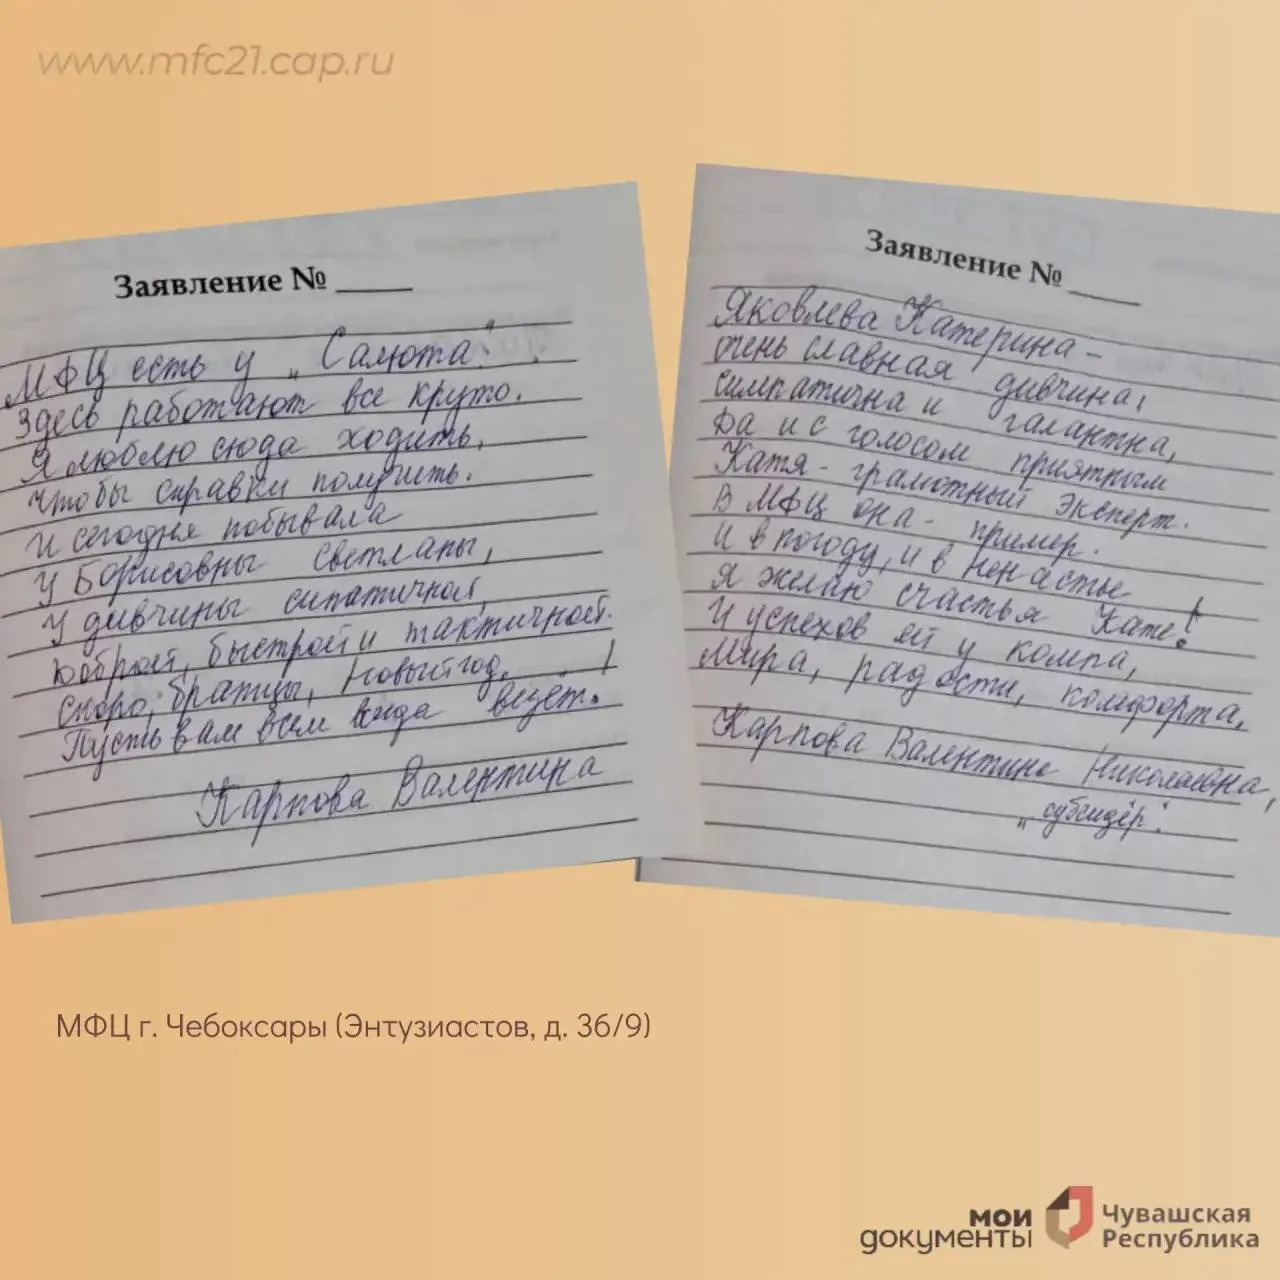 www.mfc21.cap.ru
Заявление № ____
МФЦ есть у „Салюта“.
Здесь работают все круто.
Я люблю сюда ходить,
Чтобы справки получить.
И сегодня побывала
У Борисовны Светланы,
У дивчины сипатичной,
Доброй, быстрой и тактичной.
Скоро, братцы, Новый год,
Пусть вам всем везёт!
Карпова Валентина
Заявление № ____
Яковлева Катерина –
очень славная дивчина,
симпатична и галантна,
Да и с голосом приятным
Катя – грамотный эксперт.
В МФЦ она – пример.
И в погоду, и в ненастье
Я желаю счастья Кате!
И успехов ей у компа,
Мира, радости, комфорта,
Карпова Валентина Николаевна,
„субсидёр“.
МФЦ г. Чебоксары (Энтузиастов, д. 36/9)
мои
документы
Чувашская
Республика